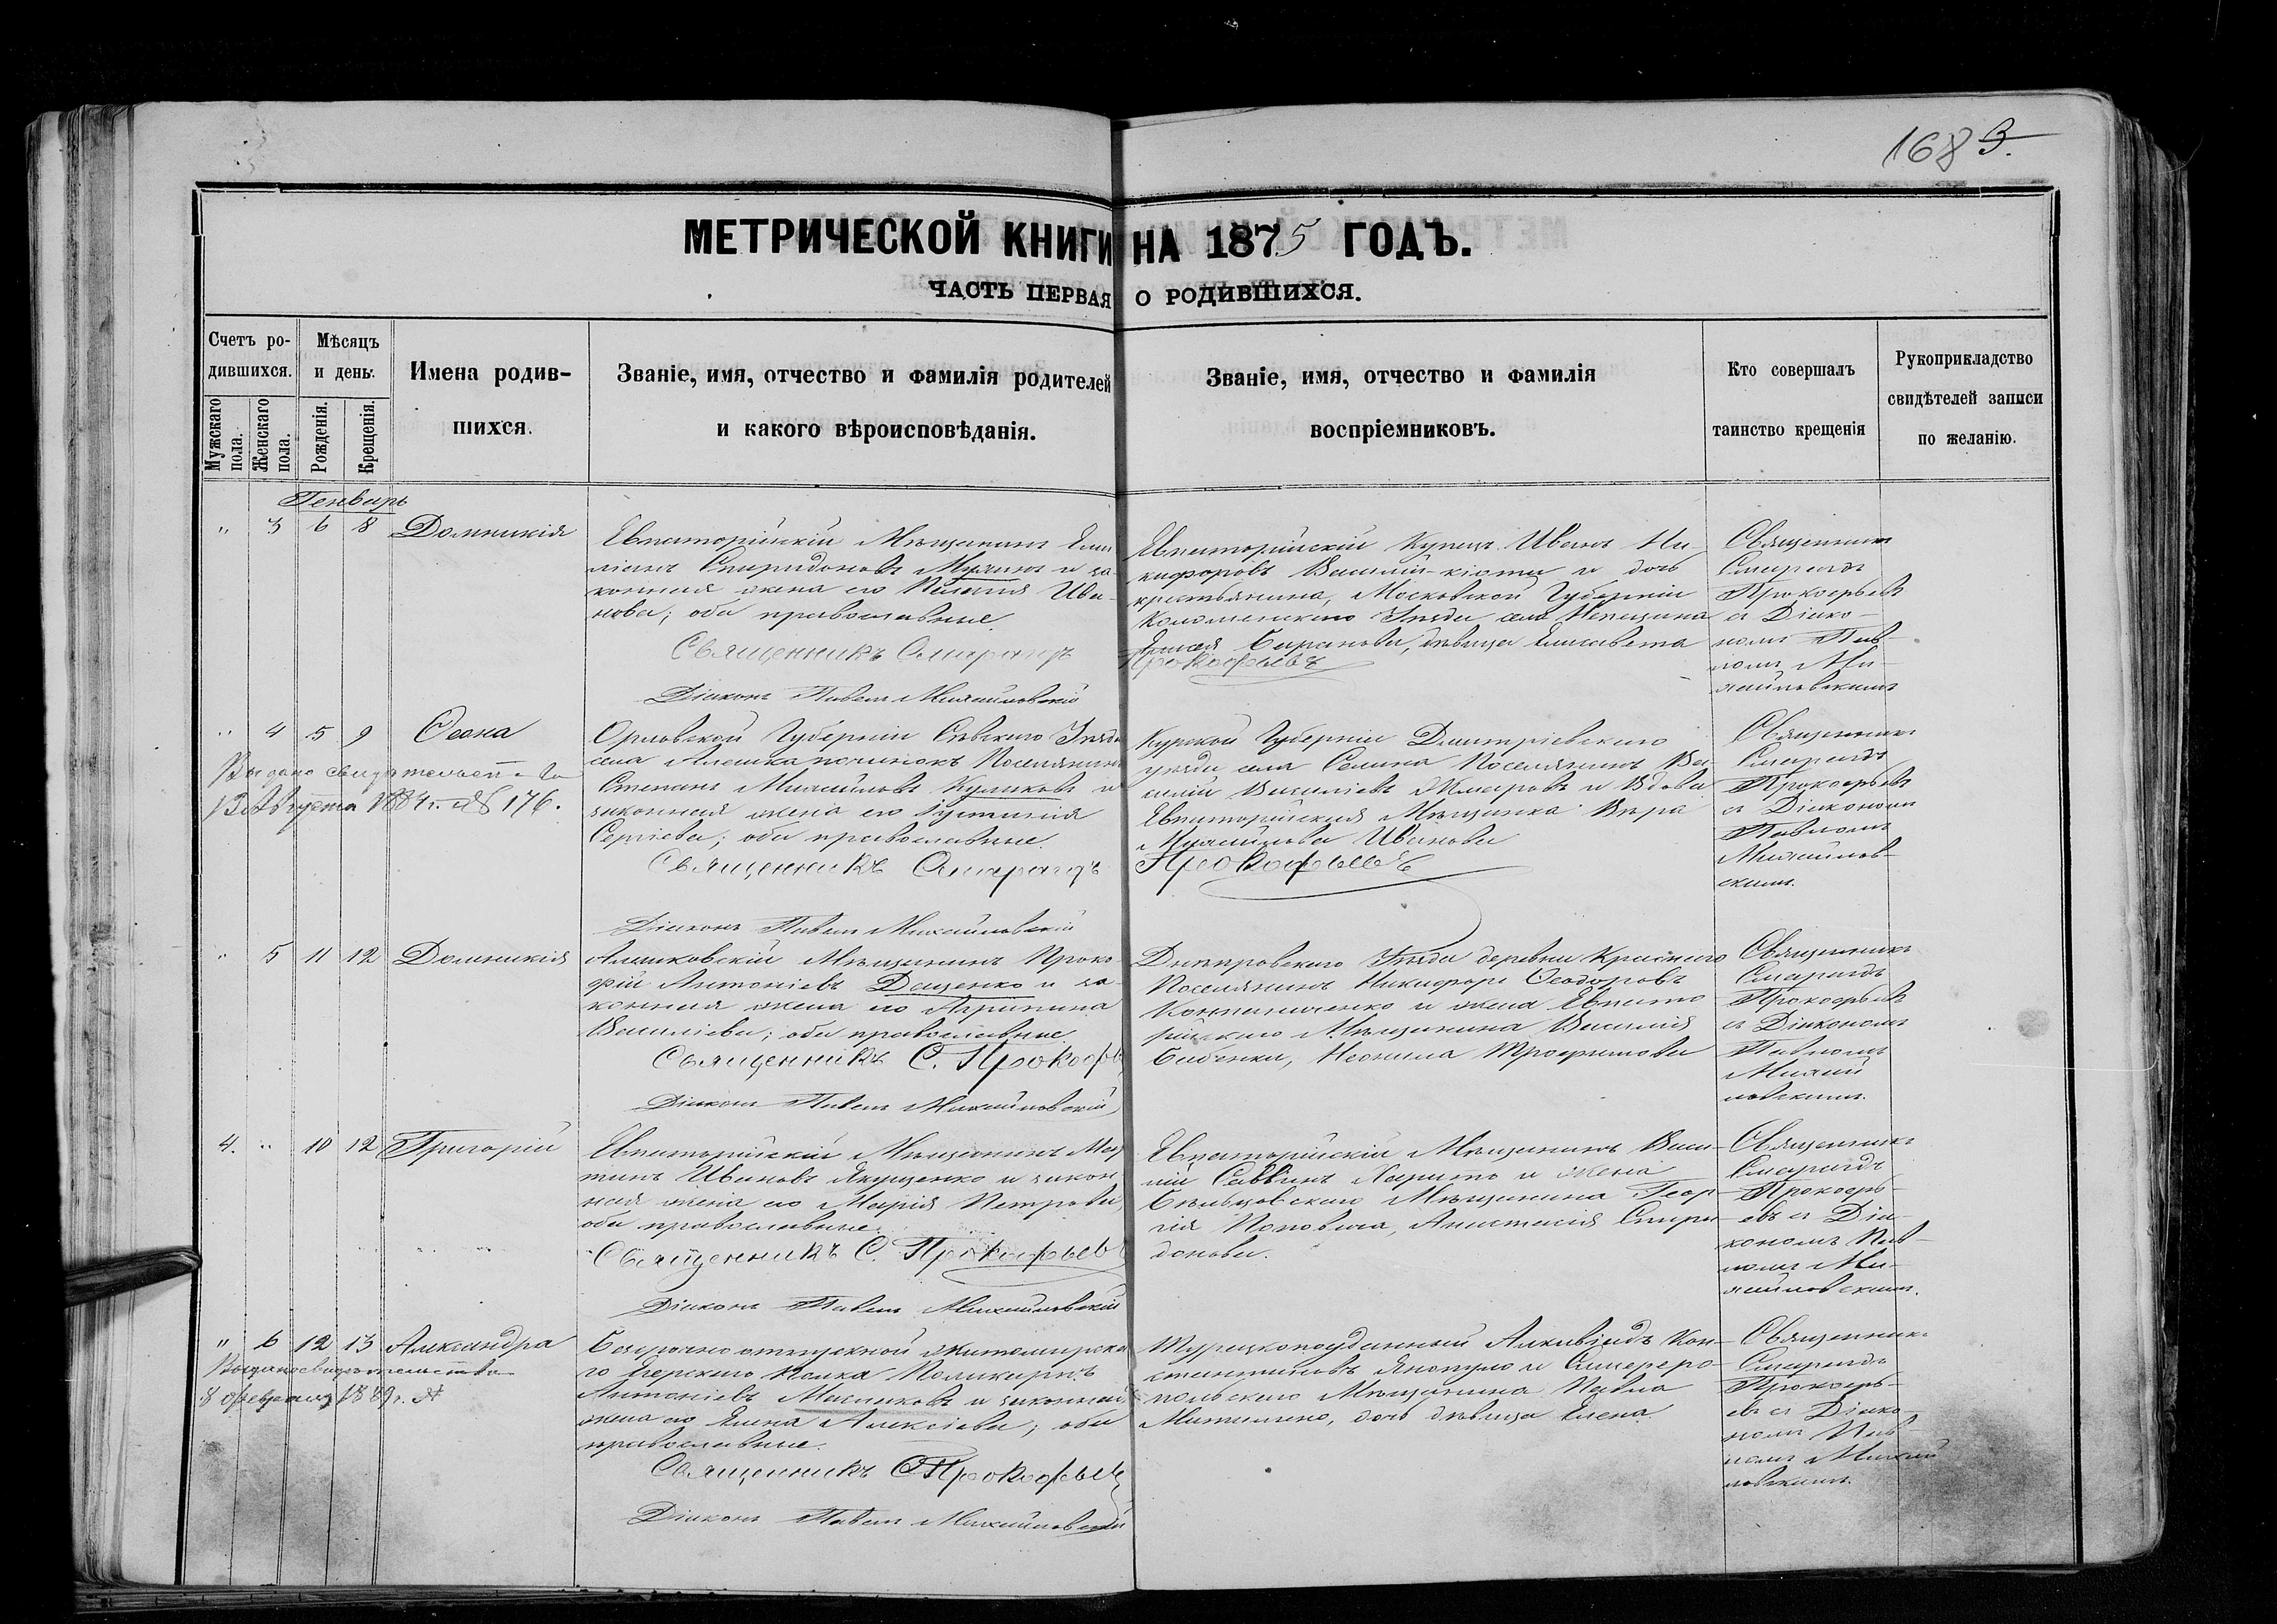 168 3.
МЕТРИЧЕСКОЙ КНИГИ НА 1875 ГОДЪ.
ЧАСТЬ ПЕРВАЯ О РОДИВШИХСЯ.
Счетъ ро-
дившихся.
Мужскаго пола.
Женскаго пола.
Мѣсяцъ
и день.
Рожденія.
Крещенія.
Имена родив-
шихся.
Званіе, имя, отчество и фамилія родителей
и какого вѣроисповѣданія.
Званіе, имя, отчество и фамилія
воспріемниковъ.
Кто совершалъ
таинство крещенія
Рукоприкладство
свидѣтелей записи
по желанію.
Генварь
" 3 6 8 Домникія
Евпаторійскій Мѣщанинъ Еми-
ліанъ Спиридоновъ и за-
конная жена его Пелагія Ива-
нова; оба православные.
Священникъ Смарагдъ Прокофьевъ
Діаконъ Павелъ Михайловскій
Евпаторійскій Купецъ Иванъ Ни-
кифоровъ и дочь
крестьянина, Московской Губерніи
Коломенскаго Уѣзда села
Баранова, дѣвица Елисавета
Священникъ
Смарагдъ
Прокофьевъ
съ Діако-
номъ Пав-
ломъ Ми-
хайловскимъ
" 4 5 9 Ѳеона
Выдано свидѣтельст. за
13 Августа 1884 г. № 176.
Орловской Губерніи Сѣвскаго Уѣзда
села Поселянинъ
Степанъ Михайловъ Куликовъ и
законная жена его Іустинія
Сергіева; оба православные.
Священникъ Смарагдъ Прокофьевъ
Діаконъ Павелъ Михайловскій
Курской Губерніи Дмитріевскаго
уѣзда села Селина Поселянинъ Ва-
силій Васильевъ и Вдова
Евпаторійская Мѣщанка Вѣра
Михайлова Иванова
Священникъ
Смарагдъ
Прокофьевъ
съ Діакономъ
Павломъ
Михайлов-
скимъ.
" 5 11 12 Домникія
Алешковскій Мѣщанинъ Проко-
фій Антоніевъ Доценко и за-
конная жена его Агрипина
Василіева; оба православные
Священникъ С. Прокофьевъ
Діаконъ Павелъ Михайловскій
Днѣпровскаго Уѣзда деревни
Поселянинъ Никифоръ Ѳеодоровъ
и жена Евпато-
рійскаго Мѣщанина Василія
Бабенки, Неонила Трофимова
Священникъ
Смарагдъ
Прокофьевъ
съ Діакономъ
Павломъ
Михай
ловскимъ.
4. " 10 12 Григорій
Евпаторійскій Мѣщанинъ Мар
тинъ Ивановъ Якущенко и закон
ная жена его Марія Петрова,
оба православные.
Священникъ С. Прокофьевъ
Діаконъ Павелъ Михайловскій
Евпаторійскій Мѣщанинъ Васи-
лій Саввинъ и жена
Мѣщанина Геор-
гія Поповича, Анастасія Спири-
донова.
Священникъ
Смарагдъ
Прокофь-
евъ съ Діа-
кономъ Пав-
ломъ Ми-
хайловскимъ.
" 6 12 13 Александра
Выдано свидѣтельство
8 февраля 1889 г. №
Безсрочно отпускной Житомирска
го Егерскаго Полка Поликарпъ
Антоніевъ Мясниковъ и законная
жена его Елена Алексіева; оба
православные.
Священникъ С. Прокофьевъ
Діаконъ Павелъ Михайловскій
Турецкоподданный Алкивіадъ Кон-
стантиновъ Янопуло и Симферо-
польскаго Мѣщанина Павла
дочь дѣвица Елена
Священникъ
Смарагдъ
Прокофь-
евъ съ Діако-
номъ Пав-
ломъ Михай
ловскимъ.